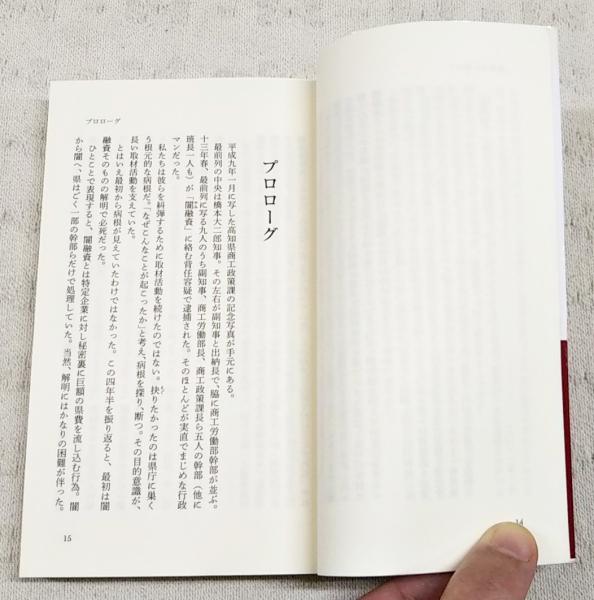 プロローグ
プロローグ
平成九年一月に写した高知県商工政策課の記念写真が手元にある。
最前列の中央は橋本大二郎知事。その左右が副知事と出納長で、脇に商工労働部幹部が並ぶ。
十三年春、最前列に写る九人のうち副知事、商工労働部長、商工政策課長ら五人の幹部（他に
班長一人も）が「闇融資」に絡む背任容疑で逮捕された。そのほとんどが実直でまじめな行政
マンだった。
私たちは彼らを糾弾するために取材活動を続けたのではない。抉りたかったのは県庁に巣く
う根元的な病根だ。「なぜこんなことが起こったか」と考え、病根を探り、断つ。その目的意識が、
長い取材活動を支えていた。
とはいえ最初から病根が見えていたわけではなかった。この四年半を振り返ると、最初は闇
融資そのものの解明で必死だった。
ひとことで表現すると、闇融資とは特定企業に対し秘密裏に巨額の県費を流し込む行為。闇
から闇へ、県はごく一部の幹部らだけで処理していた。当然、解明にはかなりの困難が伴った。
15
14